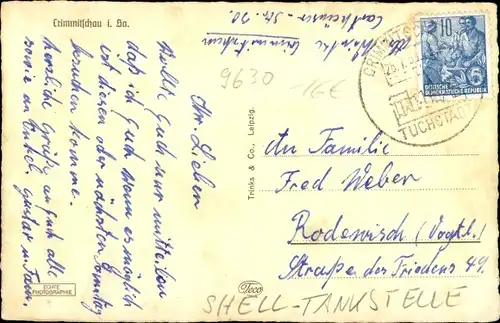 Crimmitschau i. Sa.
Ihr Lieben
Wollte Euch nur mitteilen
daß ich Euch wenn es möglich
ist diesen oder nächsten Sonntag
besuchen komme.
herzliche Grüße an Euch alle
sowie an Onkel Gustav u. Fam.
9630
16€
Trinks & Co., Leipzig.
ECHTE
PHOTOGRAPHIE
Teco
10
DEUTSCHE
DEMOKRATISCHE REPUBLIK
CRIMMITSCHAU
TUCHSTADT
An Familie
Fred Weber
Rodewisch (Vogtl.)
Straße des Friedens 49.
SHELL-TANKSTELLE